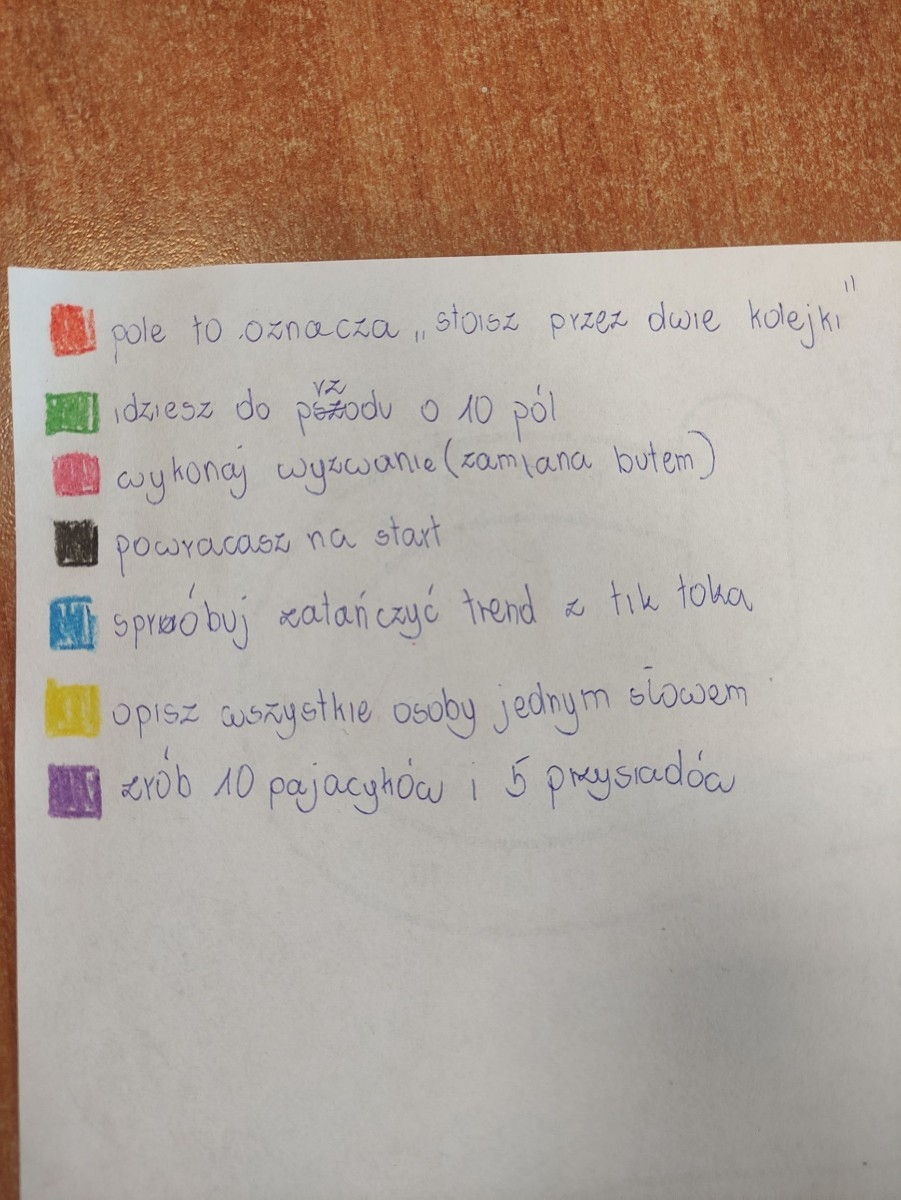 pole to oznacza „stoisz przez dwie kolejki"
idziesz do przodu o 10 pól
wykonaj wyzwanie (zamiana butem)
powracasz na start
spróbuj zatańczyć trend z tik toka
opisz wszystkie osoby jednym słowem
zrób 10 pajacyków i 5 przysiadów